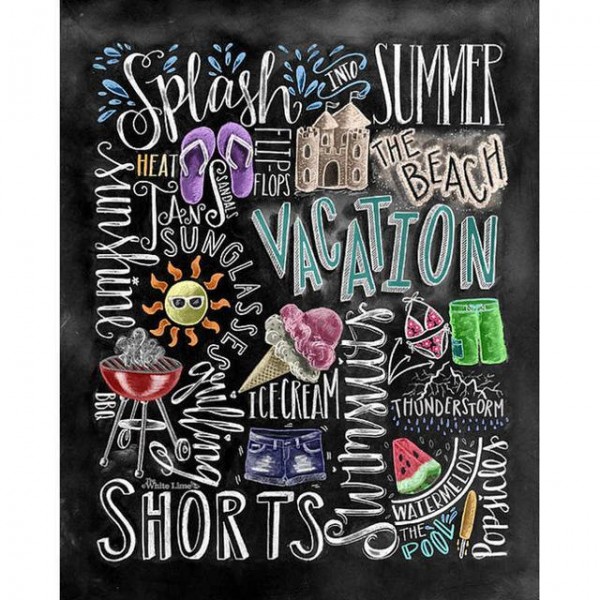 Splash
INTO
SUMMER
HEAT
FLIP-
FLOPS
THE
BEACH
Sunshine
TANS
SANDALS
SUNGLASSES
VACATION
BBQ
Grilling
ICE CREAM
Swimsuits
THUNDERSTORM
WATERMELON
THE
POOL
Popsicles
The
White Lime
SHORTS